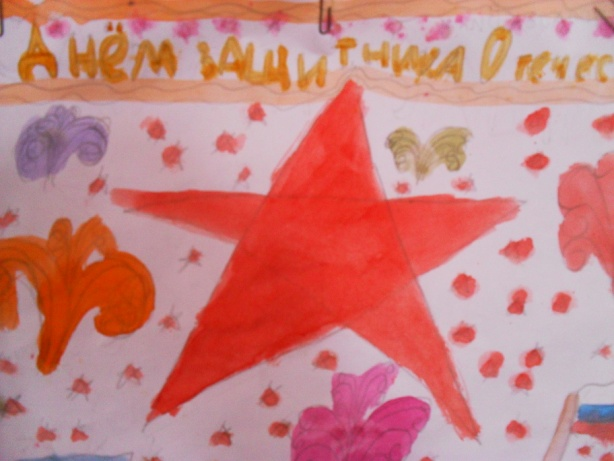 Днём защитника Отечес